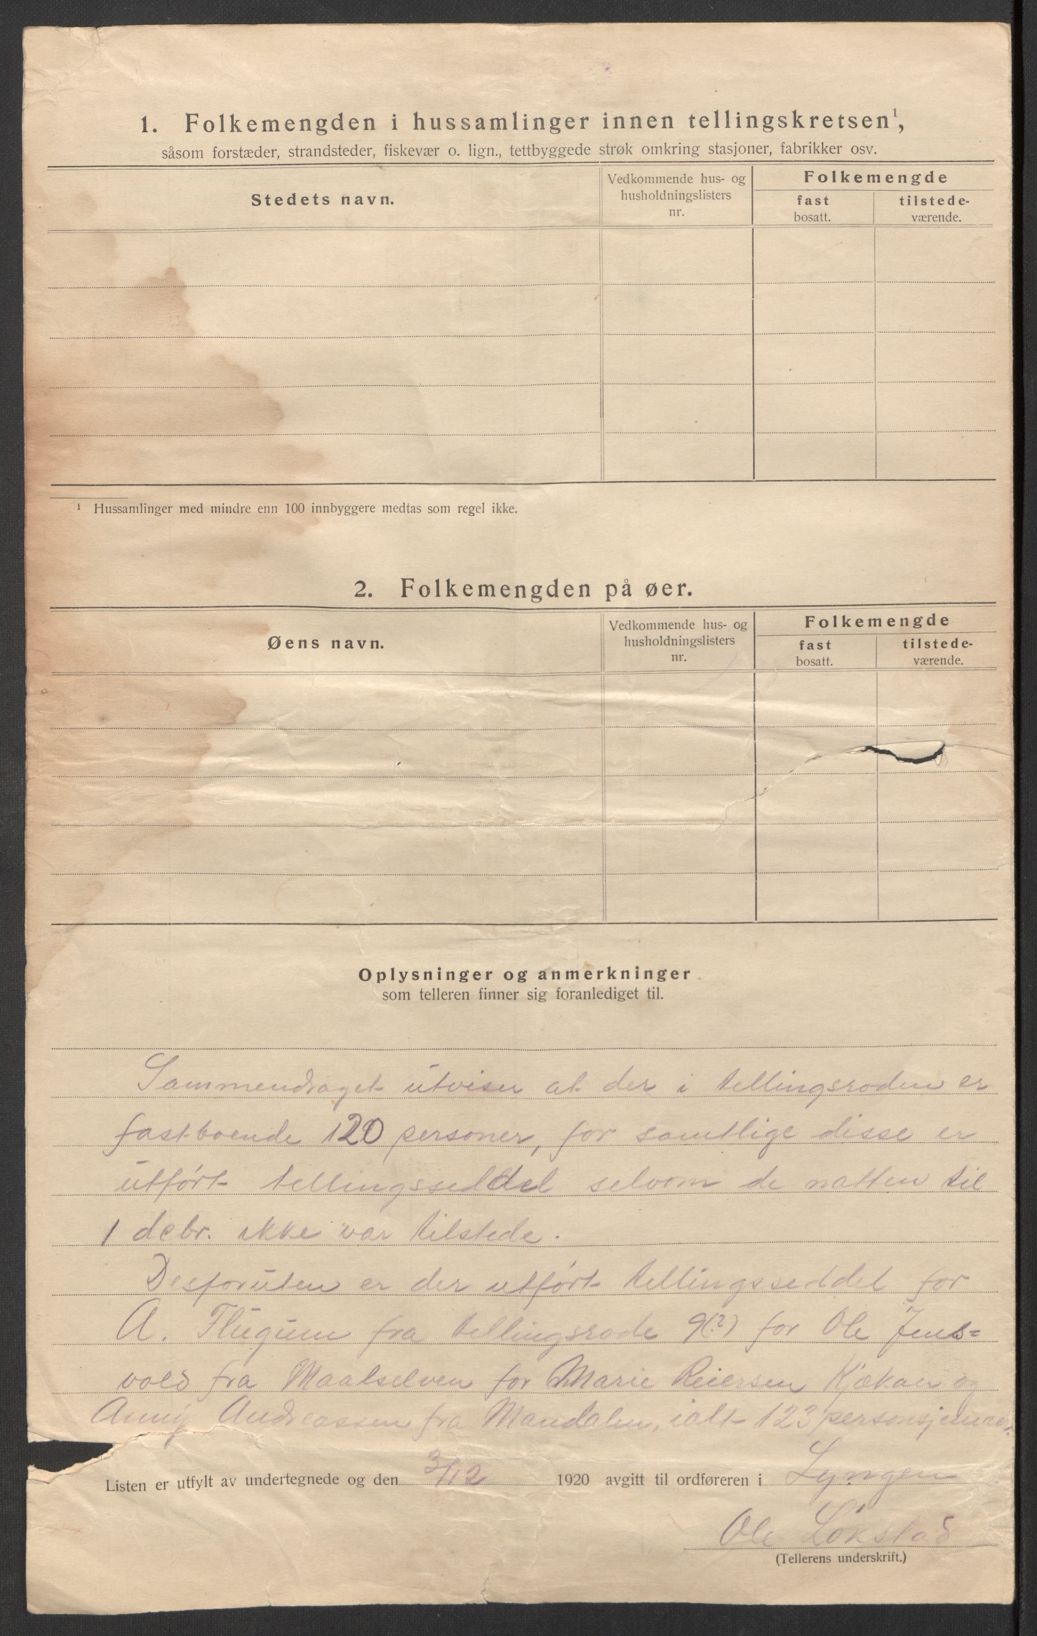 1. Folkemengden i hussamlinger innen tellingskretsen¹,
såsom forstæder, strandsteder, fiskevær o. lign., tettbyggede strøk omkring stasjoner, fabrikker osv.
Stedets navn.
Vedkommende hus- og
husholdningslisters
nr.
Folkemengde
fast
bosatt.
tilstede-
værende.
¹ Hussamlinger med mindre enn 100 innbyggere medtas som regel ikke.
2. Folkemengden på øer.
Øens navn.
Vedkommende hus- og
husholdningslisters
nr.
Folkemengde
fast
bosatt.
tilstede-
værende.
Oplysninger og anmerkninger
som telleren finner sig foranlediget til.
Sammendraget utviser at der i tellingsroden er
fastboende 120 personer, for samtlige disse er
utført tellingsseddel selvom de natten til
1 debr. ikke var tilstede.
Desforuten er der utført tellingsseddel for
A. Flugum fra tellingsrode 9(?) for Ole Jens=
vold fra Maalselven for Marie Reiersen Kjøkan og
Anny Andreassen fra Mandalen, ialt 123
Listen er utfylt av undertegnede og den 3/12 1920 avgitt til ordføreren i Lyngen
Ole Lökstad
(Tellerens underskrift.)